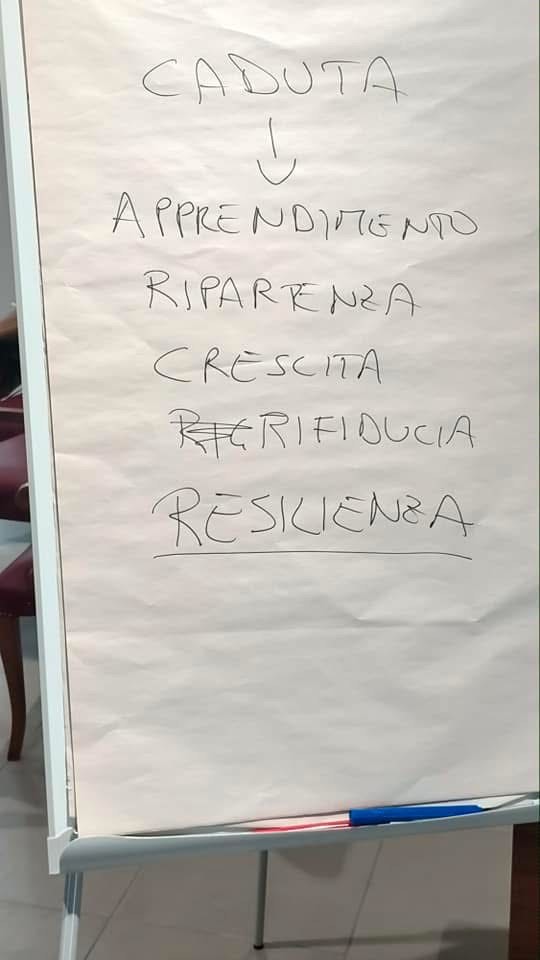 CADUTA
APPRENDIMENTO
RIPARTENZA
CRESCITA
RIFIDUCIA
RESILIENZA